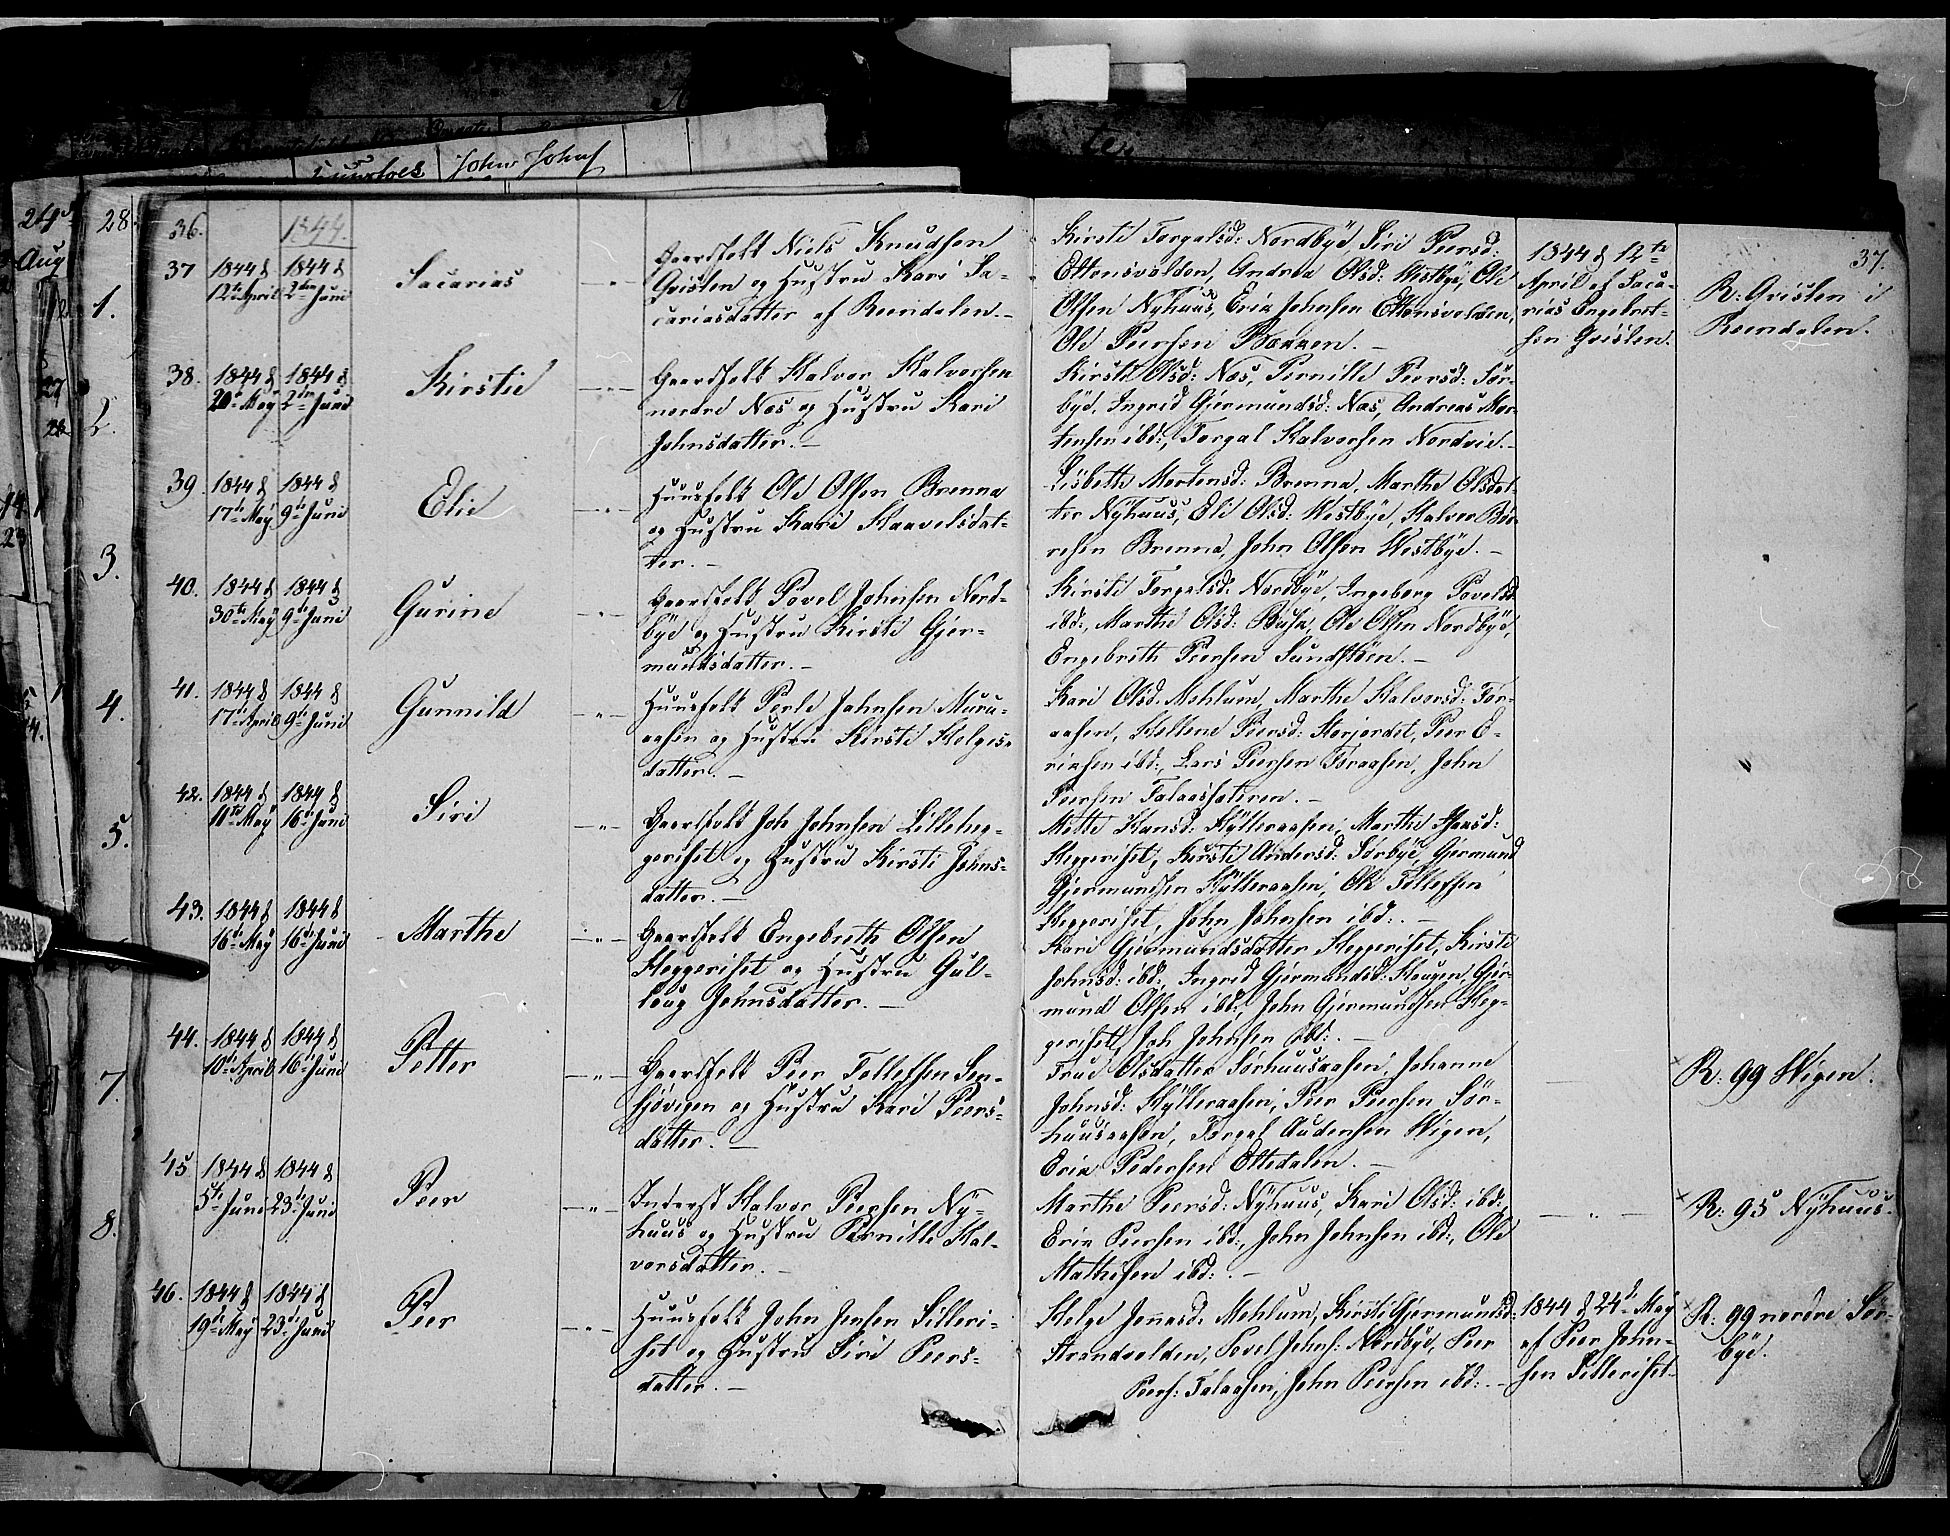 John Johns
24
Aug
28.
36.
1844.
37.
37 1844 d 12te April 1844 d 2den Juni Sacarias
Gaardfolk Niels Knudsen
Qvisten og Hustru Kari Sa-
cariasdatter af Reendalen.-
Kirsti Torgalsd: Nordbye, Siri Peersd:
Ettensvolden, Andrea Olsd: Westbye, Ole
Olsen Nyhuus, Erik Johnsen Ettensvolden,
Ole Peersen Bakken.-
1844 d 12te
April af Saca-
rias Engebret-
sen Qvisten.
R: Qvisten i
Reendalen.
38. 1844 d 20de May 1844 d 2den Juni Kirstie
Gaardfolk Halvor Halvorsen
nordre Næs og Hustru Kari
Johnsdatter.-
Kirsti Olsd: Næs, Pernille Peersd: Sør-
bye, Ingrid Gjermundsd: Næs, Andreas Mor-
tensen ibd:, Torgal Halvorsen Nordvie.-
39. 1844 d 17de May 1844 d 9de Juni Elie
Huusfolk Ole Olsen Brenna
og Hustru Kari Haavelsdat-
ter.-
Lisbeth Mortensd: Brenna, Marthe Olsdat-
ter Nyhuus, Eli Olsd: Westbye, Halvor Bør-
resen Brenna, John Olsen Westbye.-
40. 1844 d 30te May 1844 d 9de Juni Gurine
Gaardfolk Povel Johnsen Nord-
bye og Hustru Kirsti Gjer-
mundsdatter.-
Kirsti Torgalsd: Nordbye, Ingeborg Povelsd
ibd:, Marthe Olsd: , Ole Olsen Nordbye,
Engebreth Peersen Sundfloen.-
41. 1844 d 17de April 1844 d 9de Juni Gunnild
Huusfolk Perle Johnsen Muru-
aasen og Hustru Kirsti Helges-
datter.-
Kari Olsd. Mehlum, Marthe Halvorsd: For-
aasen, Hellene Peersd: Storjordet, Peer E-
riksen ibd:, Lars Peersen Foraasen, John
Peersen Falaassæteren.-
42. 1844 d 11te May 1844 d 16de Juni Siri
Gaardfolk Joh Johnsen Lilleheg-
geriset og Hustru Kirsti Johns-
datter.-
Mette Hansd: Hylleraasen, Marthe
Heggeriset, Kirsti Andersd: Sørbye, Gjermund
Gjermundsen Hylleraasen, Ole Tollefsen
Heggeriset, John Johnsen ibd:.-
43. 1844 d 16de May 1844 d 16de Juni Marthe
Gaardfolk Engebreth Olsen
Heggeriset og Hustru Gul-
laug Johnsdatter.-
Kari Gjermundsdatter Heggeriset, Kirsti
Johnsd: ibd:, Ingrid Gjermundsd: Haugen, Gjer-
mund Olsen ibd:, John Gjermundsen Heg-
geriset, Joh Johnsen ibd:.-
44. 1844 d 10de April 1844 d 16de Juni Petter
Gaardfolk Peer Tollefsen Sen-
sjøvigen og Hustru Kari Peers-
datter.-
True Olsdatter Sørhuusaasen, Johanne
Johnsd: Hylleraasen, Peer Peersen Sør-
huusaasen, Torgal Audensen Wigen,
Erik Pedersen Elledalen.-
R: 99 Wigen.
45. 1844 d 5te Juni 1844 d 23de Juni Peer
Inderst Halvor Peersen Ny-
huus og Hustru Pernille Hal-
vorsdatter.-
Marthe Peersd: Nyhuus, Kari Olsd: ibd:,
Erik Peersen ibd:, John Johnsen ibd:, Ole
Mathisen ibd:.-
R: 95 Nyhuus.
46. 1844 d 19de May 1844 d 23de Juni Peer
Huusfolk John Jensen Silleri-
set og Hustru Siri Peers-
datter.-
Helge Jonasd. Mehlum, Kirsti Gjermundsd:
Strandvolden, Povel Johns: Nordbye, Peer
Peers: Falaasen, John Peersen ibd:.-
1844 d 24de May
af Peer John-
sen Silleriset.
R. 99 nordre Sør-
bye.
1.
2.
3.
4.
5.
7.
8.